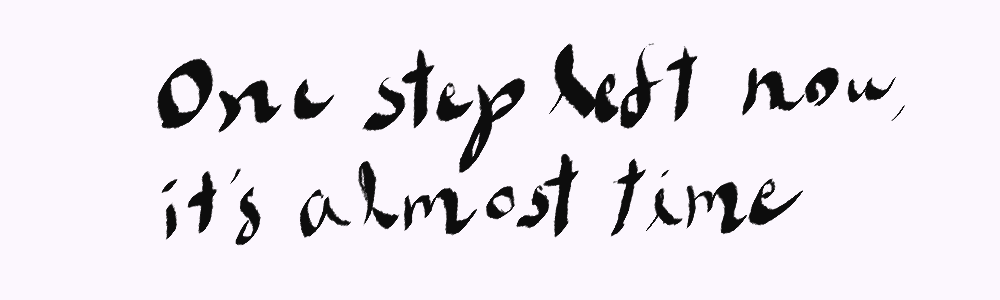 One step left now,
it's almost time